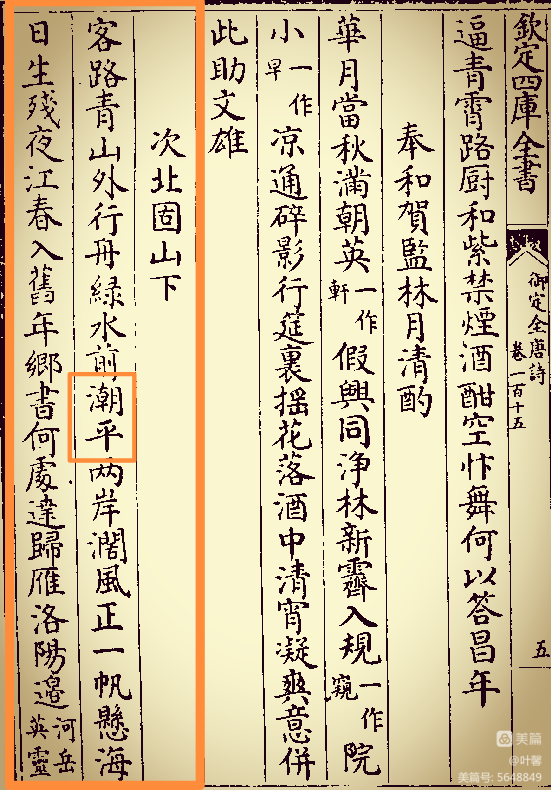 欽定四庫全書
御定全唐詩
卷一百十五
五
逼青霄路厨和紫禁煙酒酣空忭舞何以答昌年
奉和賀監林月清酌
華月當秋滿朝英一作軒假興同浄林新霽入規一作窺院
小一作早凉通碎影行筵裏揺花落酒中清宵凝爽意併
此助文雄
次北固山下
客路青山外行舟緑水前潮平两岸濶風正一帆懸海
日生殘夜江春入舊年鄉書何處達歸雁洛陽邊河岳英靈
美篇
@叶馨
美篇号: 5648849